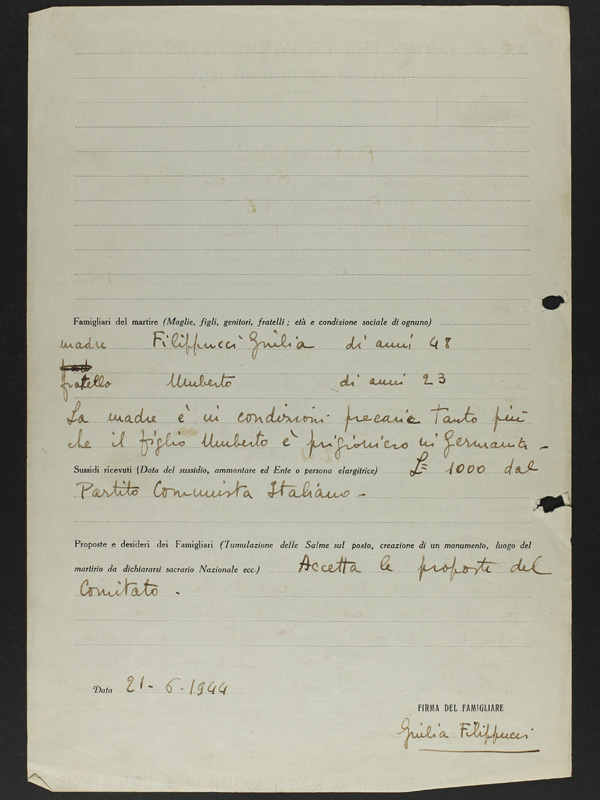 Famigliari del martire (Moglie, figli, genitori, fratelli ; età e condizione sociale di ognuno)
madre Filippucci Giulia di anni 48
fratello Umberto di anni 23
La madre è in condizioni precarie tanto più
che il figlio Umberto è prigioniero in Germania -
Sussidi ricevuti (Data del sussidio, ammontare ed Ente o persona elargitrice) L= 1000 dal
Partito Comunista Italiano -
Proposte e desideri dei Famigliari (Tumulazione delle Salme sul posto, creazione di un monumento, luogo del
martirio da dichiararsi sacrario Nazionale ecc.) Accetta le proposte del
Comitato .
Data 21-6-1944
FIRMA DEL FAMIGLIARE
Giulia Filippucci